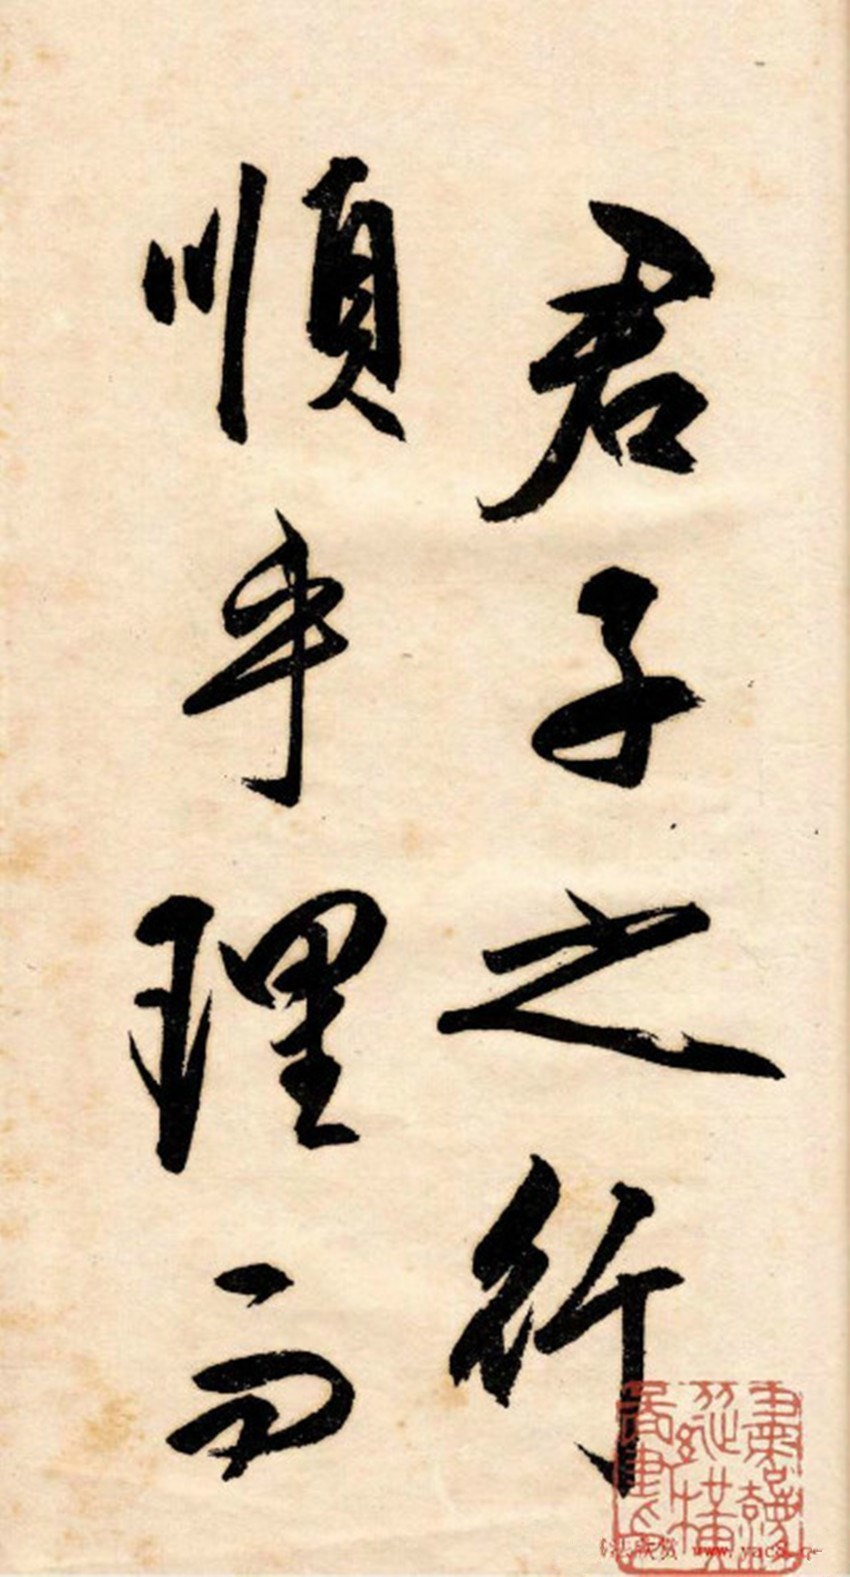 君子之行
順乎理而
www.yac8.c